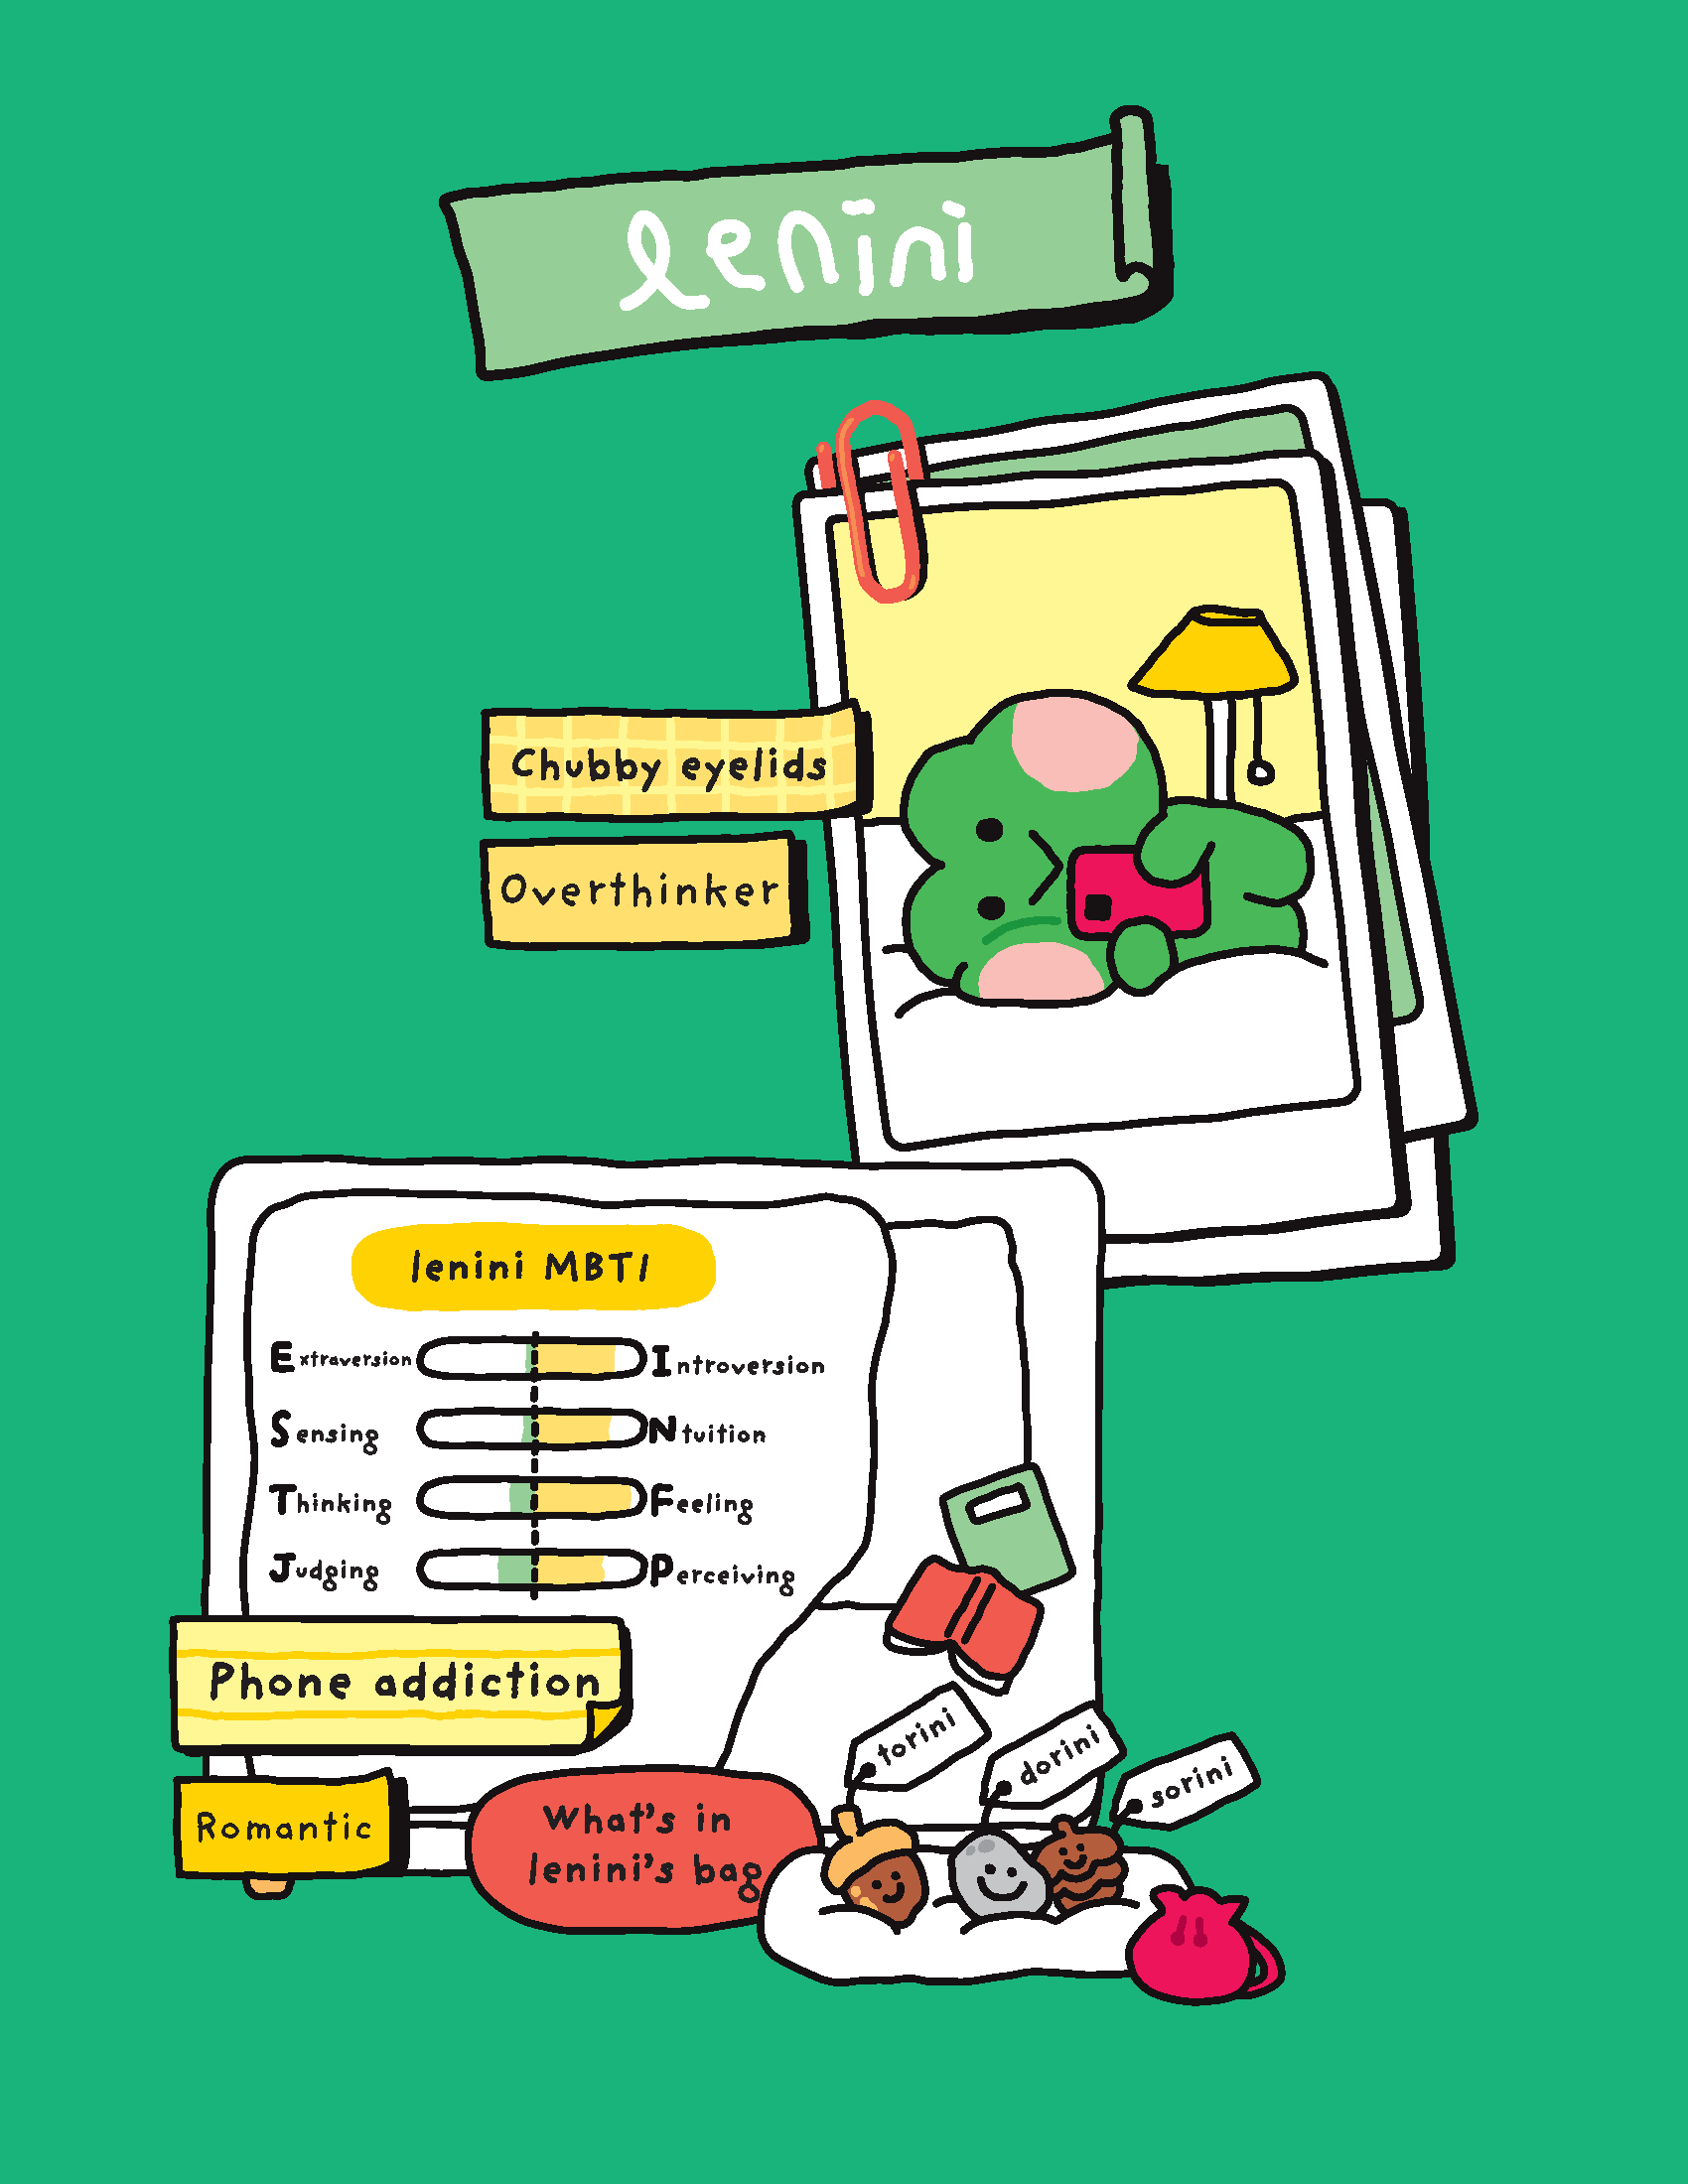 lenini
Chubby eyelids
Overthinker
lenini MBTI
Extraversion Introversion
Sensing Ntuition
Thinking Feeling
Judging Perceiving
Phone addiction
Romantic
What's in
lenini's bag
torini
dorini
sorini